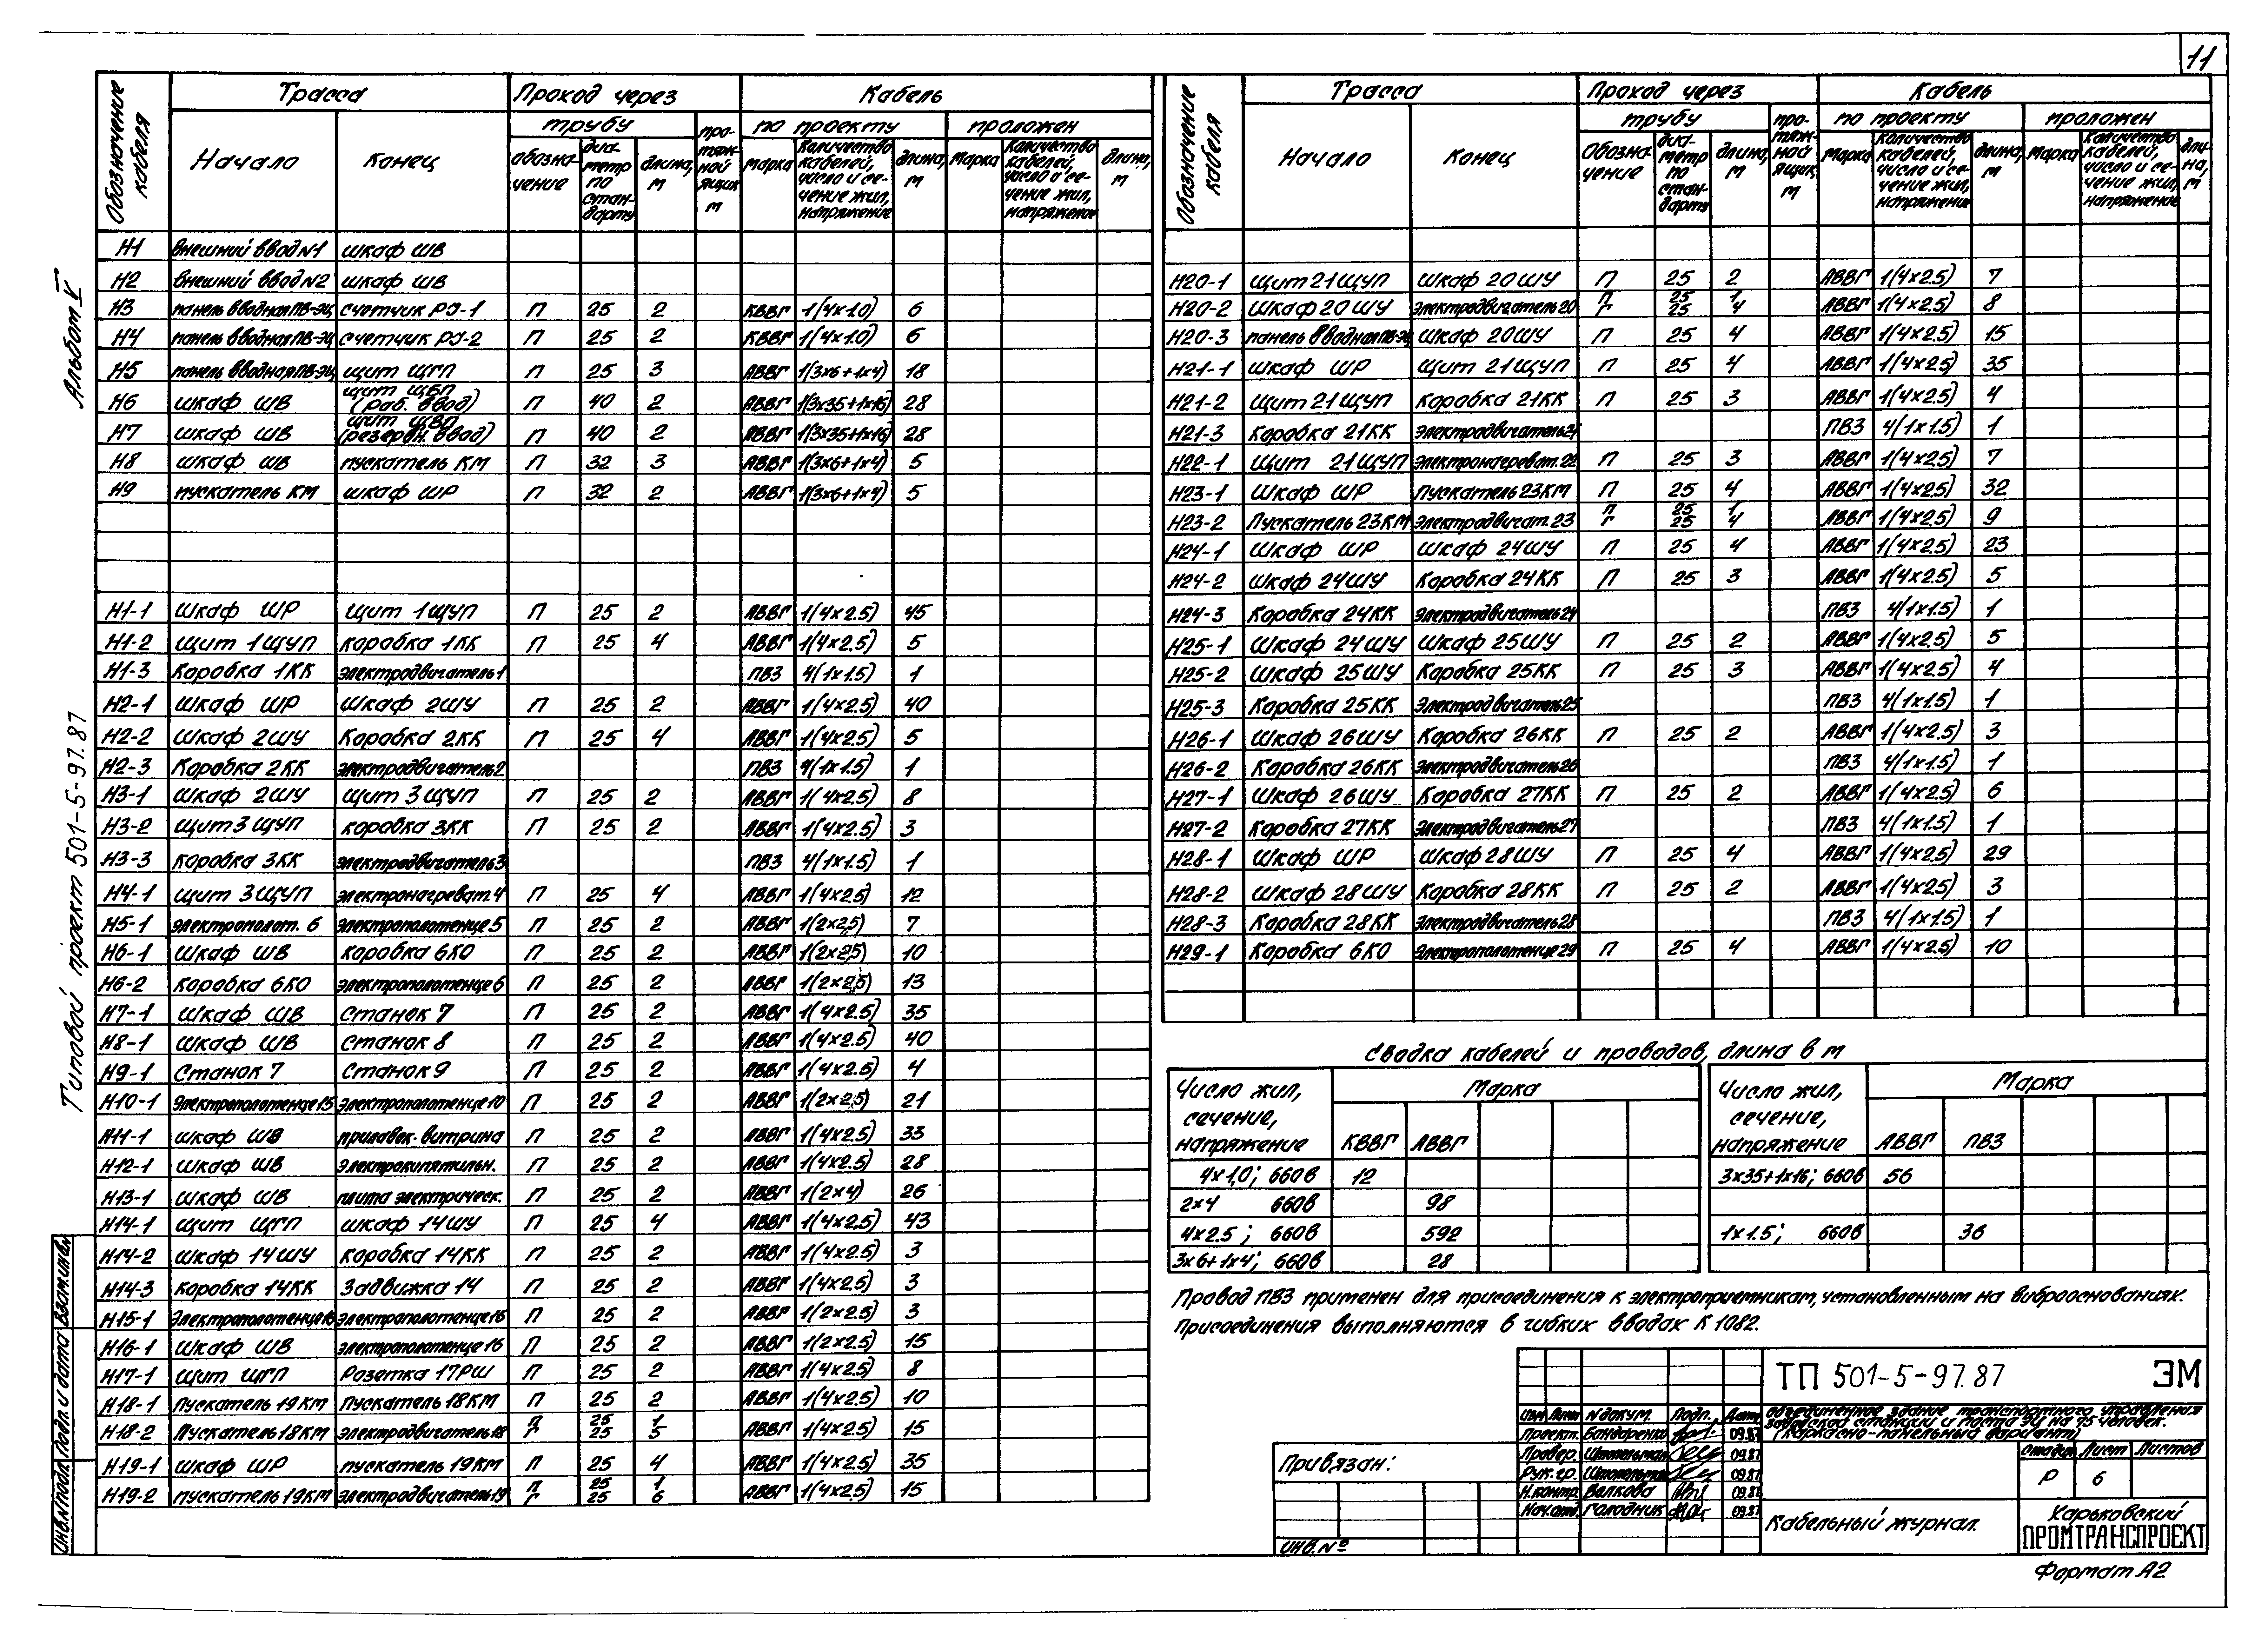 11
Альбом V
Типовой проект 501-5-97.87
Обозначение кабеля | Трасса | Проход через | Кабель
Начало | Конец | трубу | протяжной ящик, м | по проекту | проложен
обозначение | диаметр по стандарту | длина, м | марка | Количество кабелей, число и сечение жил, напряжение | длина, м | Марка | Количество кабелей, число и сечение жил, напряжение | длина, м
Н1 внешний ввод N1 шкаф ШВ
Н2 внешний ввод N2 шкаф ШВ
Н3 панель вводная ПВ-ЭЦ счетчик РЭ-1 П 25 2 КВВГ 1(4х1.0) 6
Н4 панель вводная ПВ-ЭЦ счетчик РЭ-2 П 25 2 КВВГ 1(4х1.0) 6
Н5 панель вводная ПВ-ЭЦ щит ЩГП П 25 3 АВВГ 1(3х6+1х4) 18
Н6 шкаф ШВ щит ЩВП (раб. ввод) П 40 2 АВВГ 1(3х35+1х16) 28
Н7 шкаф ШВ щит ЩВП (резервн. ввод) П 40 2 АВВГ 1(3х35+1х16) 28
Н8 шкаф ШВ пускатель КМ П 32 3 АВВГ 1(3х6+1х4) 5
Н9 пускатель КМ шкаф ШР П 32 2 АВВГ 1(3х6+1х4) 5
Н1-1 Шкаф ШР Щит 1ЩУП П 25 2 АВВГ 1(4х2.5) 45
Н1-2 Щит 1ЩУП коробка 1КК П 25 4 АВВГ 1(4х2.5) 5
Н1-3 Коробка 1КК электродвигатель 1 ПВ3 4(1х1.5) 1
Н2-1 Шкаф ШР Шкаф 2ШУ П 25 2 АВВГ 1(4х2.5) 40
Н2-2 Шкаф 2ШУ Коробка 2КК П 25 4 АВВГ 1(4х2.5) 5
Н2-3 Коробка 2КК электродвигатель 2 ПВ3 4(1х1.5) 1
Н3-1 Шкаф 2ШУ Щит 3ЩУП П 25 2 АВВГ 1(4х2.5) 8
Н3-2 Щит 3ЩУП коробка 3КК П 25 2 АВВГ 1(4х2.5) 3
Н3-3 Коробка 3КК электродвигатель 3 ПВ3 4(1х1.5) 1
Н4-1 Щит 3ЩУП электронагреват. 4 П 25 4 АВВГ 1(4х2.5) 12
Н5-1 электрополот. 6 электрополотенце 5 П 25 2 АВВГ 1(2х2,5) 7
Н6-1 Шкаф ШВ коробка 6КО П 25 2 АВВГ 1(2х2,5) 10
Н6-2 Коробка 6КО электрополотенце 6 П 25 2 АВВГ 1(2х2,5) 13
Н7-1 Шкаф ШВ Станок 7 П 25 2 АВВГ 1(4х2.5) 35
Н8-1 Шкаф ШВ Станок 8 П 25 2 АВВГ 1(4х2.5) 40
Н9-1 Станок 7 Станок 9 П 25 2 АВВГ 1(4х2.5) 4
Н10-1 Электрополотенце 15 электрополотенце 10 П 25 2 АВВГ 1(2х2,5) 21
Н11-1 шкаф ШВ прилавок-витрина П 25 2 АВВГ 1(4х2.5) 33
Н12-1 Шкаф ШВ Электрокипятильн. П 25 2 АВВГ 1(4х2.5) 28
Н13-1 Шкаф ШВ плита электрическ. П 25 2 АВВГ 1(2х4) 26
Н14-1 Щит ЩГП шкаф 14ШУ П 25 4 АВВГ 1(4х2.5) 43
Н14-2 Шкаф 14ШУ Коробка 14КК П 25 2 АВВГ 1(4х2.5) 3
Н14-3 Коробка 14КК Задвижка 14 П 25 2 АВВГ 1(4х2.5) 3
Н15-1 Электрополотенце 16 электрополотенце 15 П 25 2 АВВГ 1(2х2.5) 3
Н16-1 Шкаф ШВ электрополотенце 16 П 25 2 АВВГ 1(2х2.5) 15
Н17-1 Щит ЩГП Розетка 17РШ П 25 2 АВВГ 1(4х2.5) 8
Н18-1 Пускатель 19КМ Пускатель 18КМ П 25 2 АВВГ 1(4х2.5) 10
Н18-2 Пускатель 18КМ электродвигатель 18 П Г 25 25 1 5 АВВГ 1(4х2.5) 15
Н19-1 Шкаф ШР пускатель 19КМ П 25 4 АВВГ 1(4х2.5) 35
Н19-2 пускатель 19КМ электродвигатель 19 П Г 25 25 1 6 АВВГ 1(4х2.5) 15
Обозначение кабеля | Трасса | Проход через | Кабель
Начало | Конец | трубу | протяжной ящик, м | по проекту | проложен
Обозначение | диаметр по стандарту | длина, м | Марка | Количество кабелей, число и сечение жил, напряжение | длина, м | Марка | Количество кабелей, число и сечение жил, напряжение | длина, м
Н20-1 Щит 21ЩУП Шкаф 20ШУ П 25 2 АВВГ 1(4х2.5) 7
Н20-2 Шкаф 20ШУ Электродвигатель 20 П Г 25 25 1 4 АВВГ 1(4х2.5) 8
Н20-3 панель вводная ПВ-ЭЦ Шкаф 20ШУ П 25 4 АВВГ 1(4х2.5) 15
Н21-1 Шкаф ШР Щит 21ЩУП П 25 4 АВВГ 1(4х2.5) 35
Н21-2 Щит 21ЩУП Коробка 21КК П 25 3 АВВГ 1(4х2.5) 4
Н21-3 Коробка 21КК электродвигатель 21 ПВ3 4(1х1.5) 1
Н22-1 Щит 21ЩУП электронагреват. 22 П 25 3 АВВГ 1(4х2.5) 7
Н23-1 Шкаф ШР Пускатель 23КМ П 25 4 АВВГ 1(4х2.5) 32
Н23-2 Пускатель 23КМ электродвигат. 23 П Г 25 25 1 4 АВВГ 1(4х2.5) 9
Н24-1 Шкаф ШР Шкаф 24ШУ П 25 4 АВВГ 1(4х2.5) 23
Н24-2 Шкаф 24ШУ Коробка 24КК П 25 3 АВВГ 1(4х2.5) 5
Н24-3 Коробка 24КК Электродвигатель 24 ПВ3 4(1х1.5) 1
Н25-1 Шкаф 24ШУ Шкаф 25ШУ П 25 2 АВВГ 1(4х2.5) 5
Н25-2 Шкаф 25ШУ Коробка 25КК П 25 3 АВВГ 1(4х2.5) 4
Н25-3 Коробка 25КК Электродвигатель 25 ПВ3 4(1х1.5) 1
Н26-1 Шкаф 26ШУ Коробка 26КК П 25 2 АВВГ 1(4х2.5) 3
Н26-2 Коробка 26КК Электродвигатель 26 ПВ3 4(1х1.5) 1
Н27-1 Шкаф 26ШУ Коробка 27КК П 25 2 АВВГ 1(4х2.5) 6
Н27-2 Коробка 27КК Электродвигатель 27 ПВ3 4(1х1.5) 1
Н28-1 Шкаф ШР Шкаф 28ШУ П 25 4 АВВГ 1(4х2.5) 29
Н28-2 Шкаф 28ШУ Коробка 28КК П 25 2 АВВГ 1(4х2.5) 3
Н28-3 Коробка 28КК Электродвигатель 28 ПВ3 4(1х1.5) 1
Н29-1 Коробка 6КО Электрополотенце 29 П 25 4 АВВГ 1(4х2.5) 10
Сводка кабелей и проводов, длина в м
Число жил, сечение, напряжение | Марка | Число жил, сечение, напряжение | Марка
КВВГ АВВГ | АВВГ ПВ3
4х1,0; 660в 12 | 3х35+1х16; 660в 56
2х4 660в 98
4х2.5; 660в 592 | 1х1.5; 660в 36
3х6+1х4; 660в 28
Провод ПВ3 применен для присоединения к электроприемникам, установленным на виброоснованиях.
Присоединения выполняются в гибких вводах К1082.
ТП 501-5-97.87 ЭМ
Изм Лист N докум. Подп. Дата
Объединенное здание транспортного управления
заводской станции и поста ЭЦ на 75 человек.
(каркасно-панельный вариант)
Проект. Бондаренко 09.87
Провер. Штопельман 09.87
Рук. гр. Штопельман 09.87
Н.контр. Волкова 09.87
Нач.отд. Голодник 09.87
Стадия Лист Листов
Р 6
Привязан:
ИНВ.№
Кабельный журнал.
Харьковский
ПРОМТРАНСПРОЕКТ
Формат А2
ИНВ.N подл. Подп. и дата Взам.инв.N